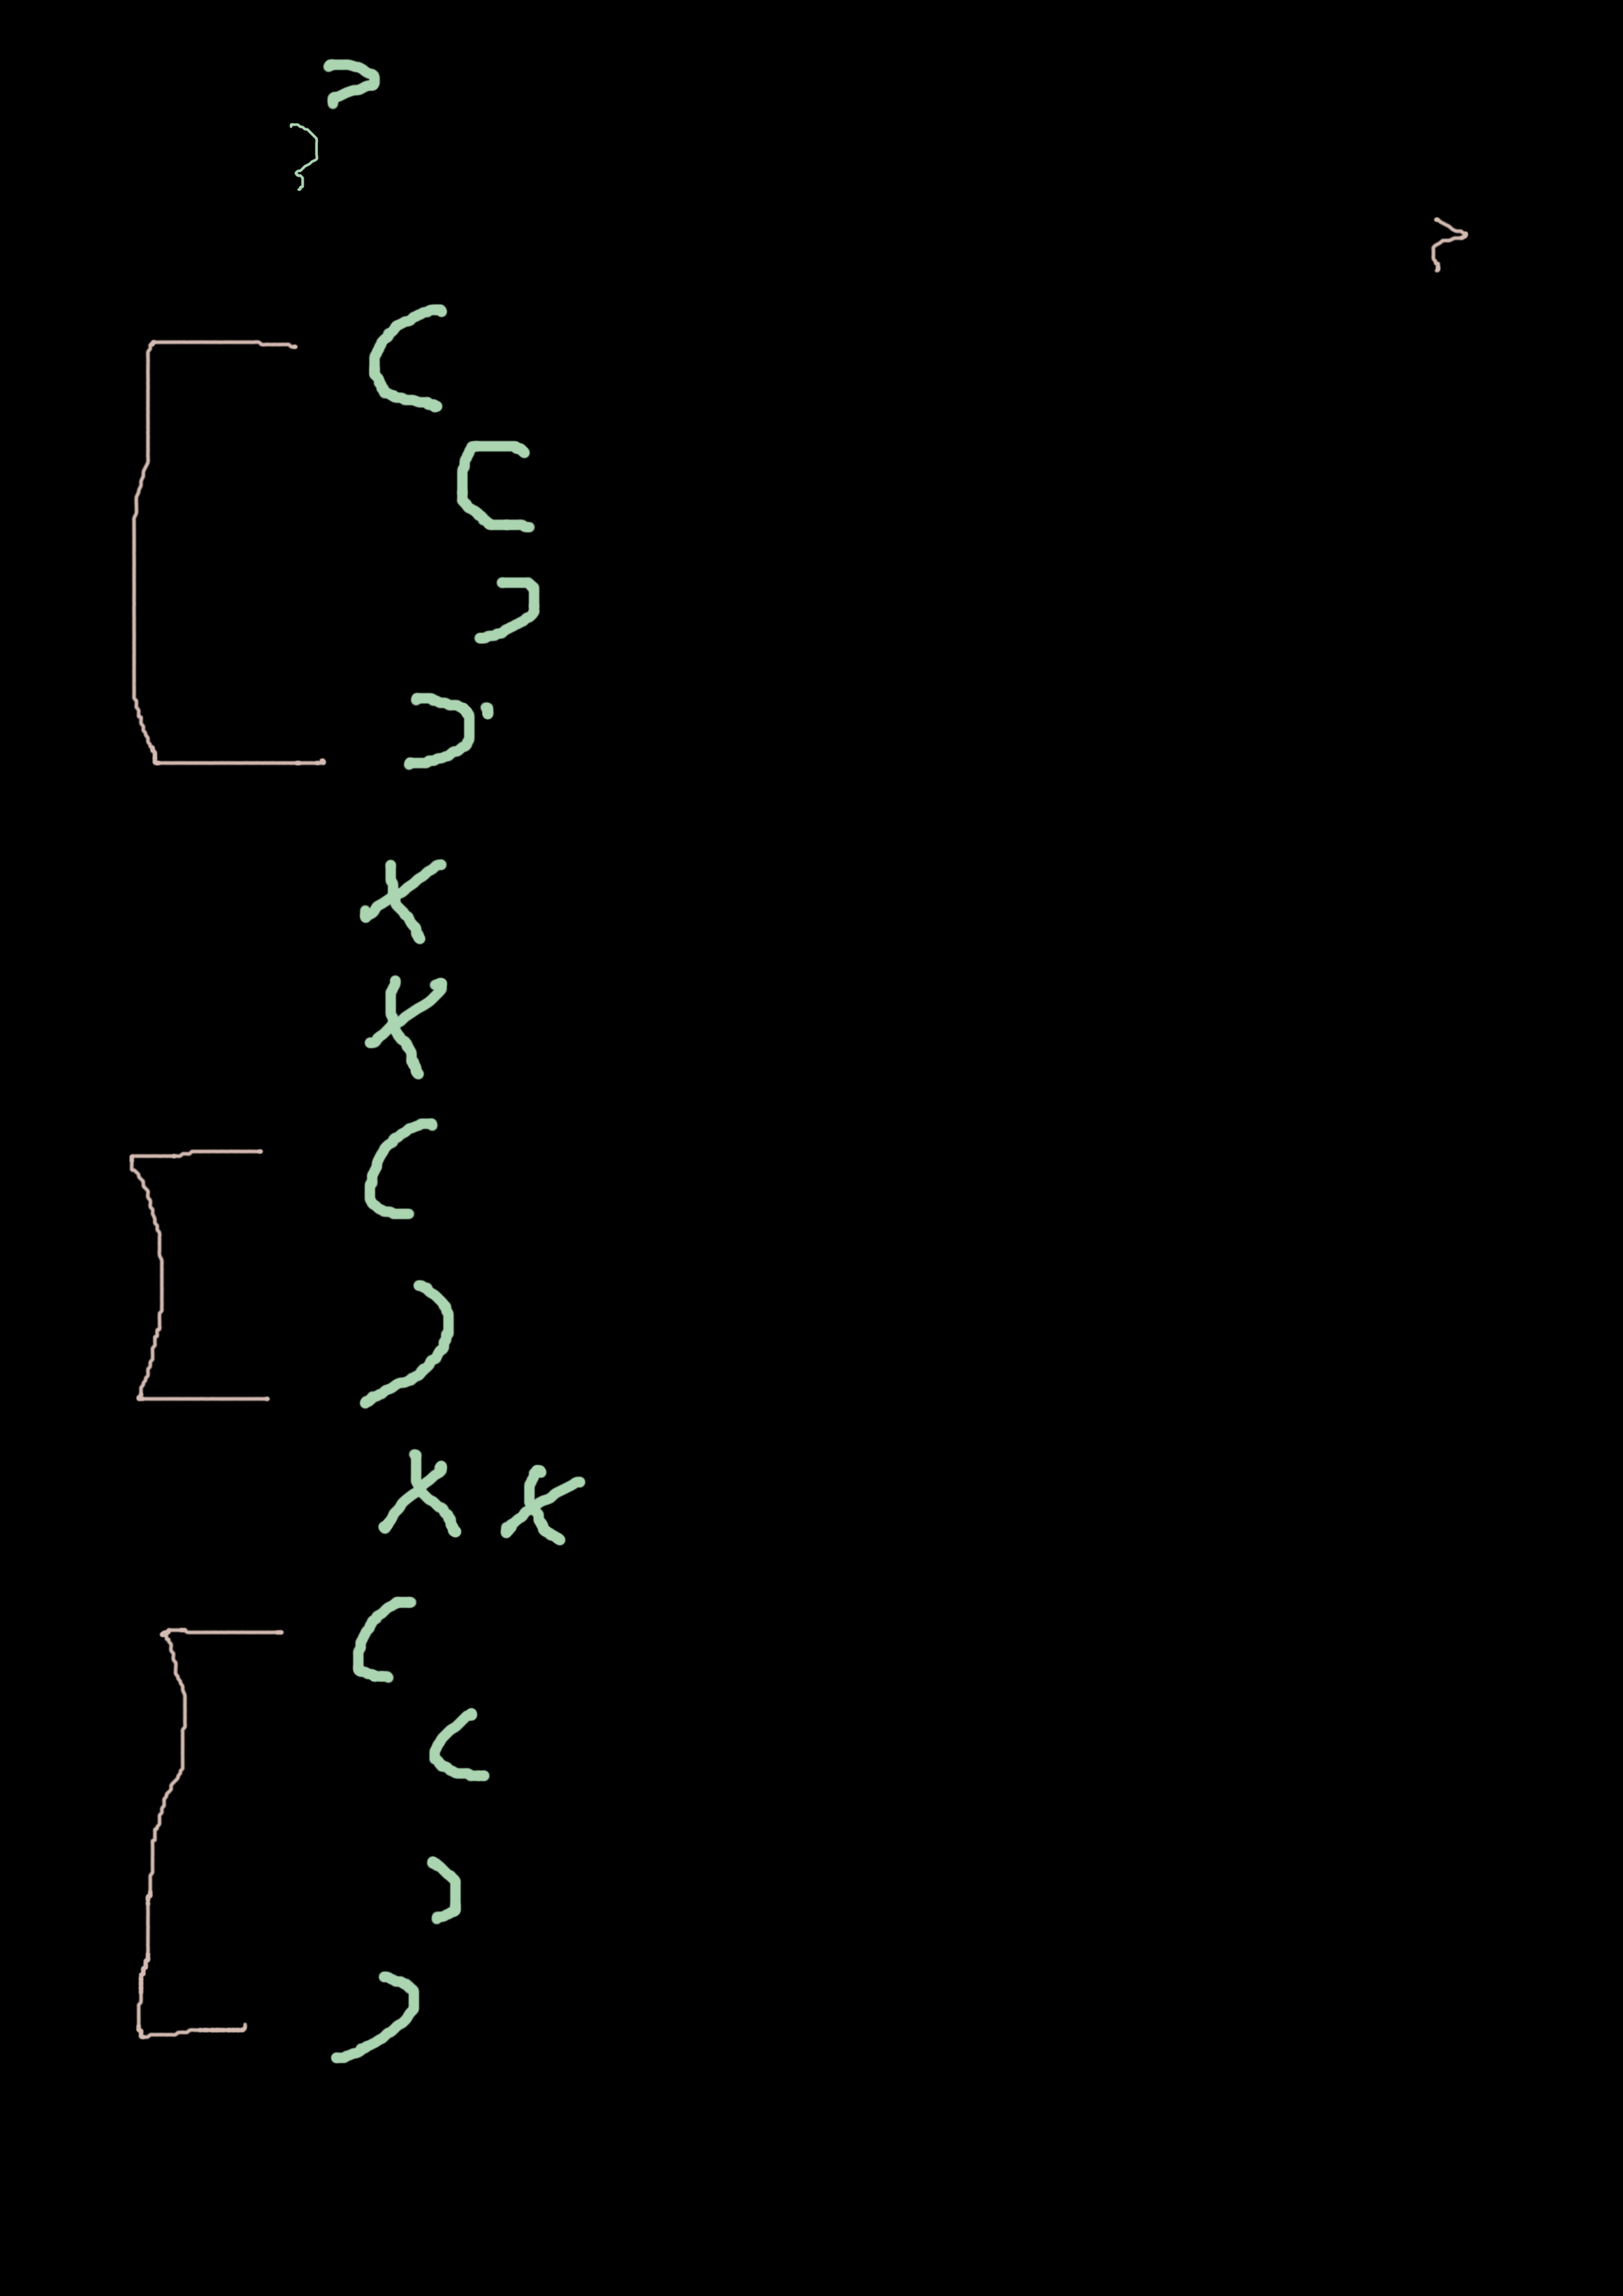 >
?
>
(
(
)
)
x
x
(
)
x x
(
(
)
)